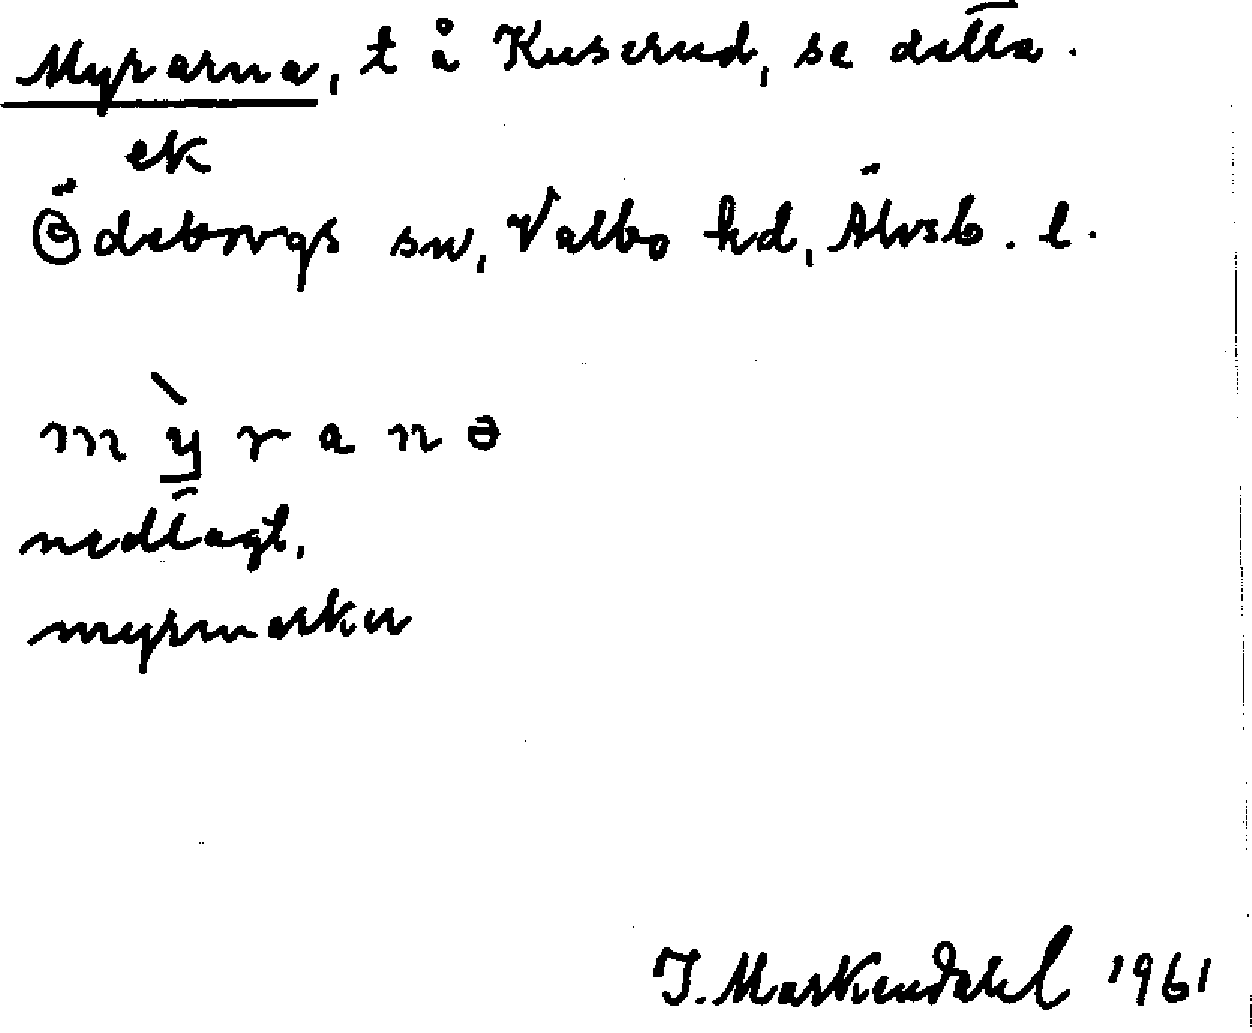 Myrarna, t å Kuserud, se detta.
ek
Ödeborgs sn, Valbo hd, Älvsb. l.
m ỳ̠ r a n ə
nedlagt,
myrmarker
J. Markendahl 1961